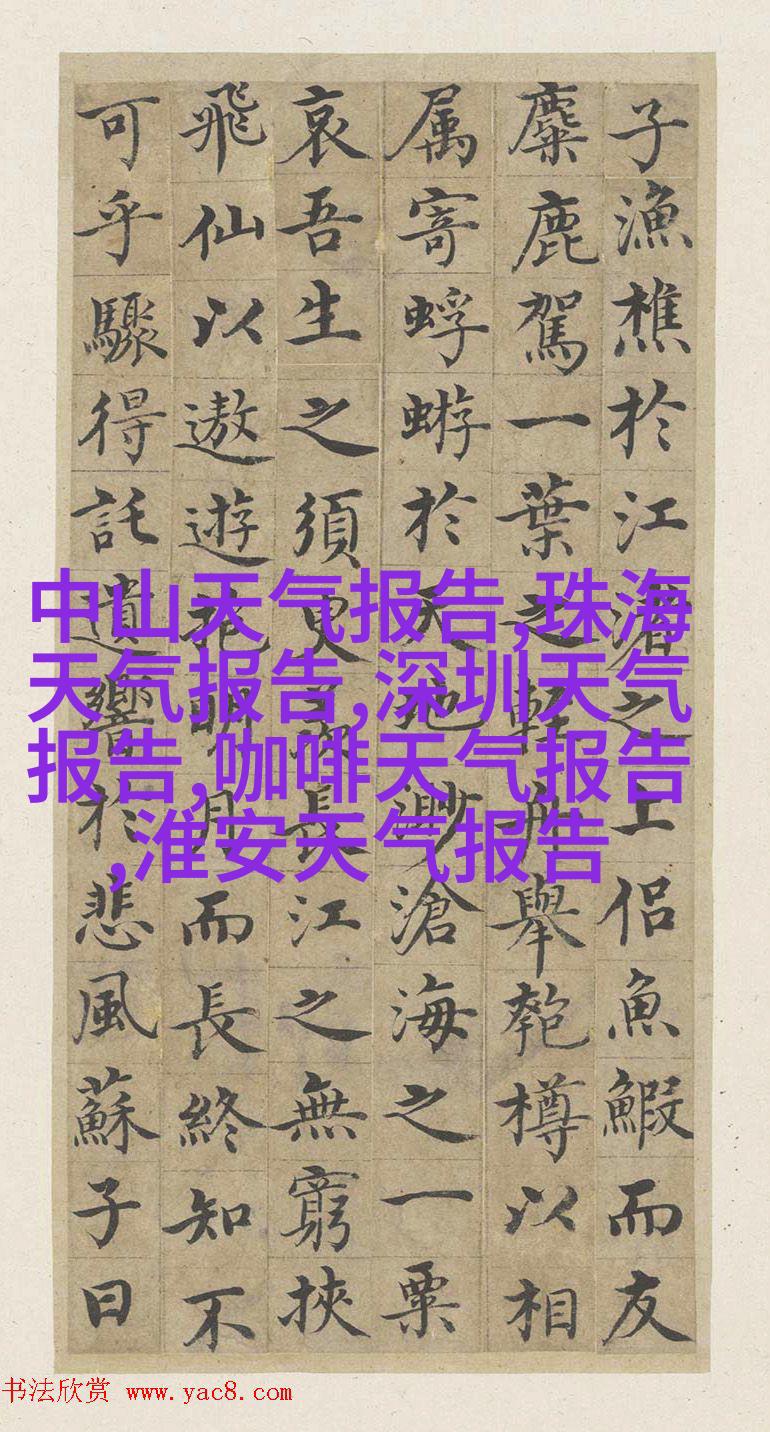 子漁樵於江渚之上侣魚鰕而友
麋鹿駕一葉之輕舟舉匏樽以相
属寄蜉蝣於天地渺滄海之一粟
哀吾生之須臾羨長江之無窮挾
飛仙以遨遊抱明月而長終知不
可乎驟得託遺響於悲風蘇子曰
中山天气报告,珠海
天气报告,深圳天气
报告,咖啡天气报告
,淮安天气报告
书法欣赏 www.yac8.com